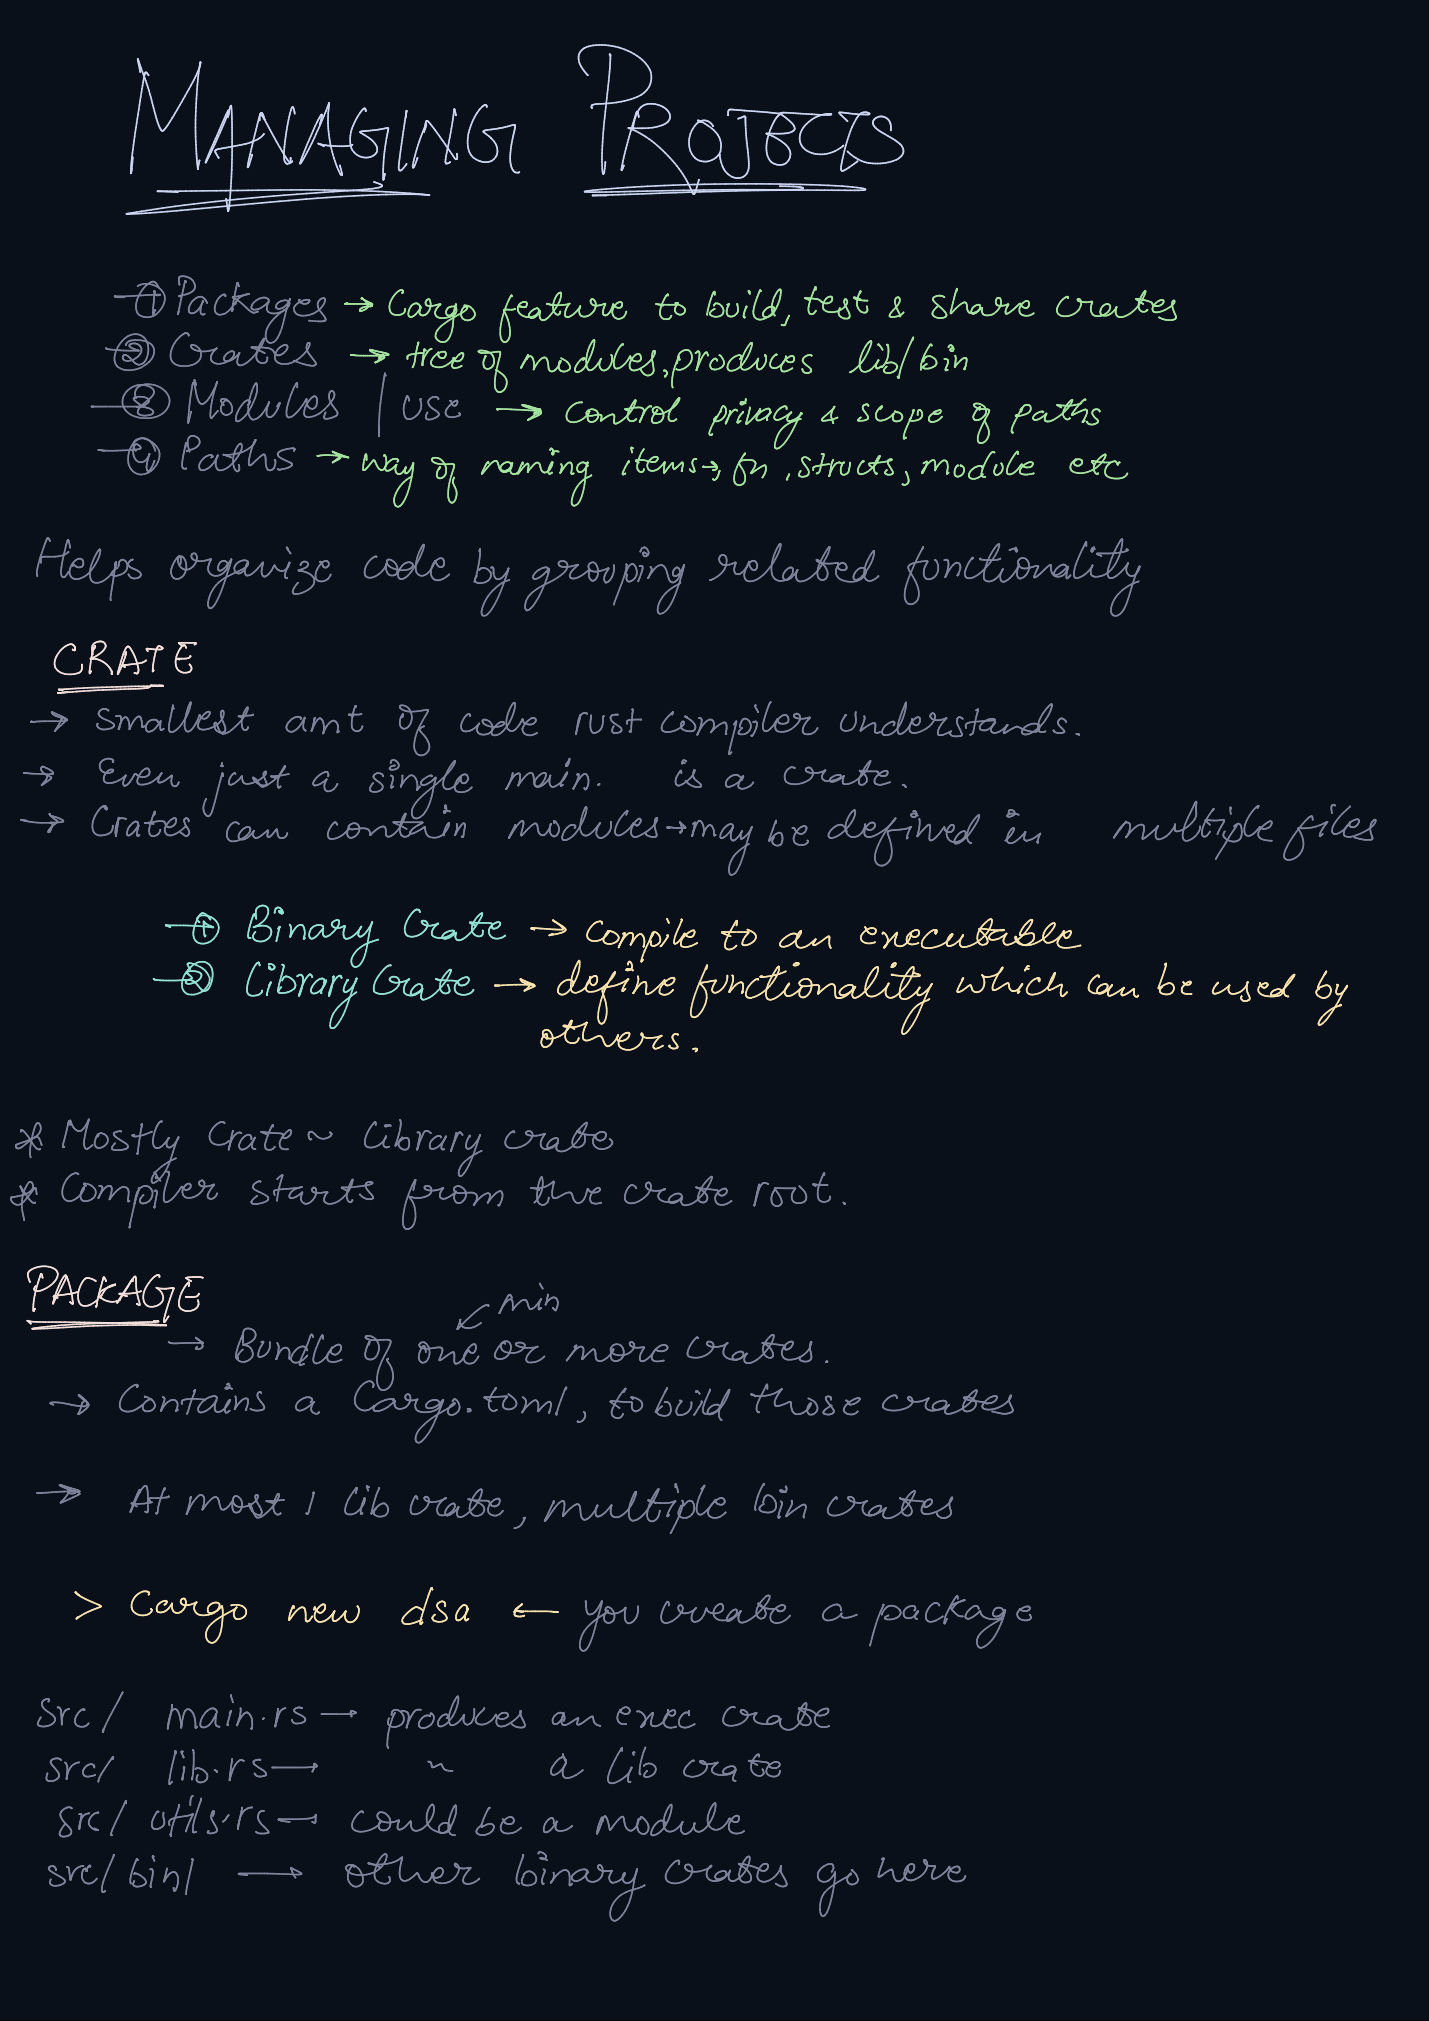 MANAGING PROJECTS
① Packages → Cargo feature to build, test & share crates
② Crates → tree of modules, produces lib/bin
③ Modules | use → control privacy & scope of paths
④ Paths → way of naming items →, fn, structs, module etc
Helps organize code by grouping related functionality
CRATE
→ smallest amt of code rust compiler understands.
→ Even just a single main. is a crate.
→ Crates can contain modules → may be defined in multiple files
① Binary Crate → compile to an executable
② Library Crate → define functionality which can be used by
others.
* Mostly Crate ~ Library crate
* Compiler starts from the crate root.
PACKAGE
min
→ Bundle of one or more crates.
→ Contains a Cargo.toml, to build those crates
→ At most 1 lib crate, multiple bin crates
> Cargo new dsa ← you create a package
src/ main.rs → produces an exec crate
src/ lib.rs → ~ a lib crate
src/ utils.rs → could be a module
src/bin/ → other binary crates go here